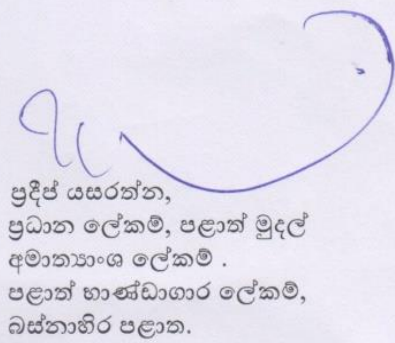 ප්‍රදීප් යසරත්න,
ප්‍රධාන ලේකම්, පළාත් මුදල්
අමාත්‍යාංශ ලේකම් .
පළාත් භාණ්ඩාගාර ලේකම්,
බස්නාහිර පළාත.